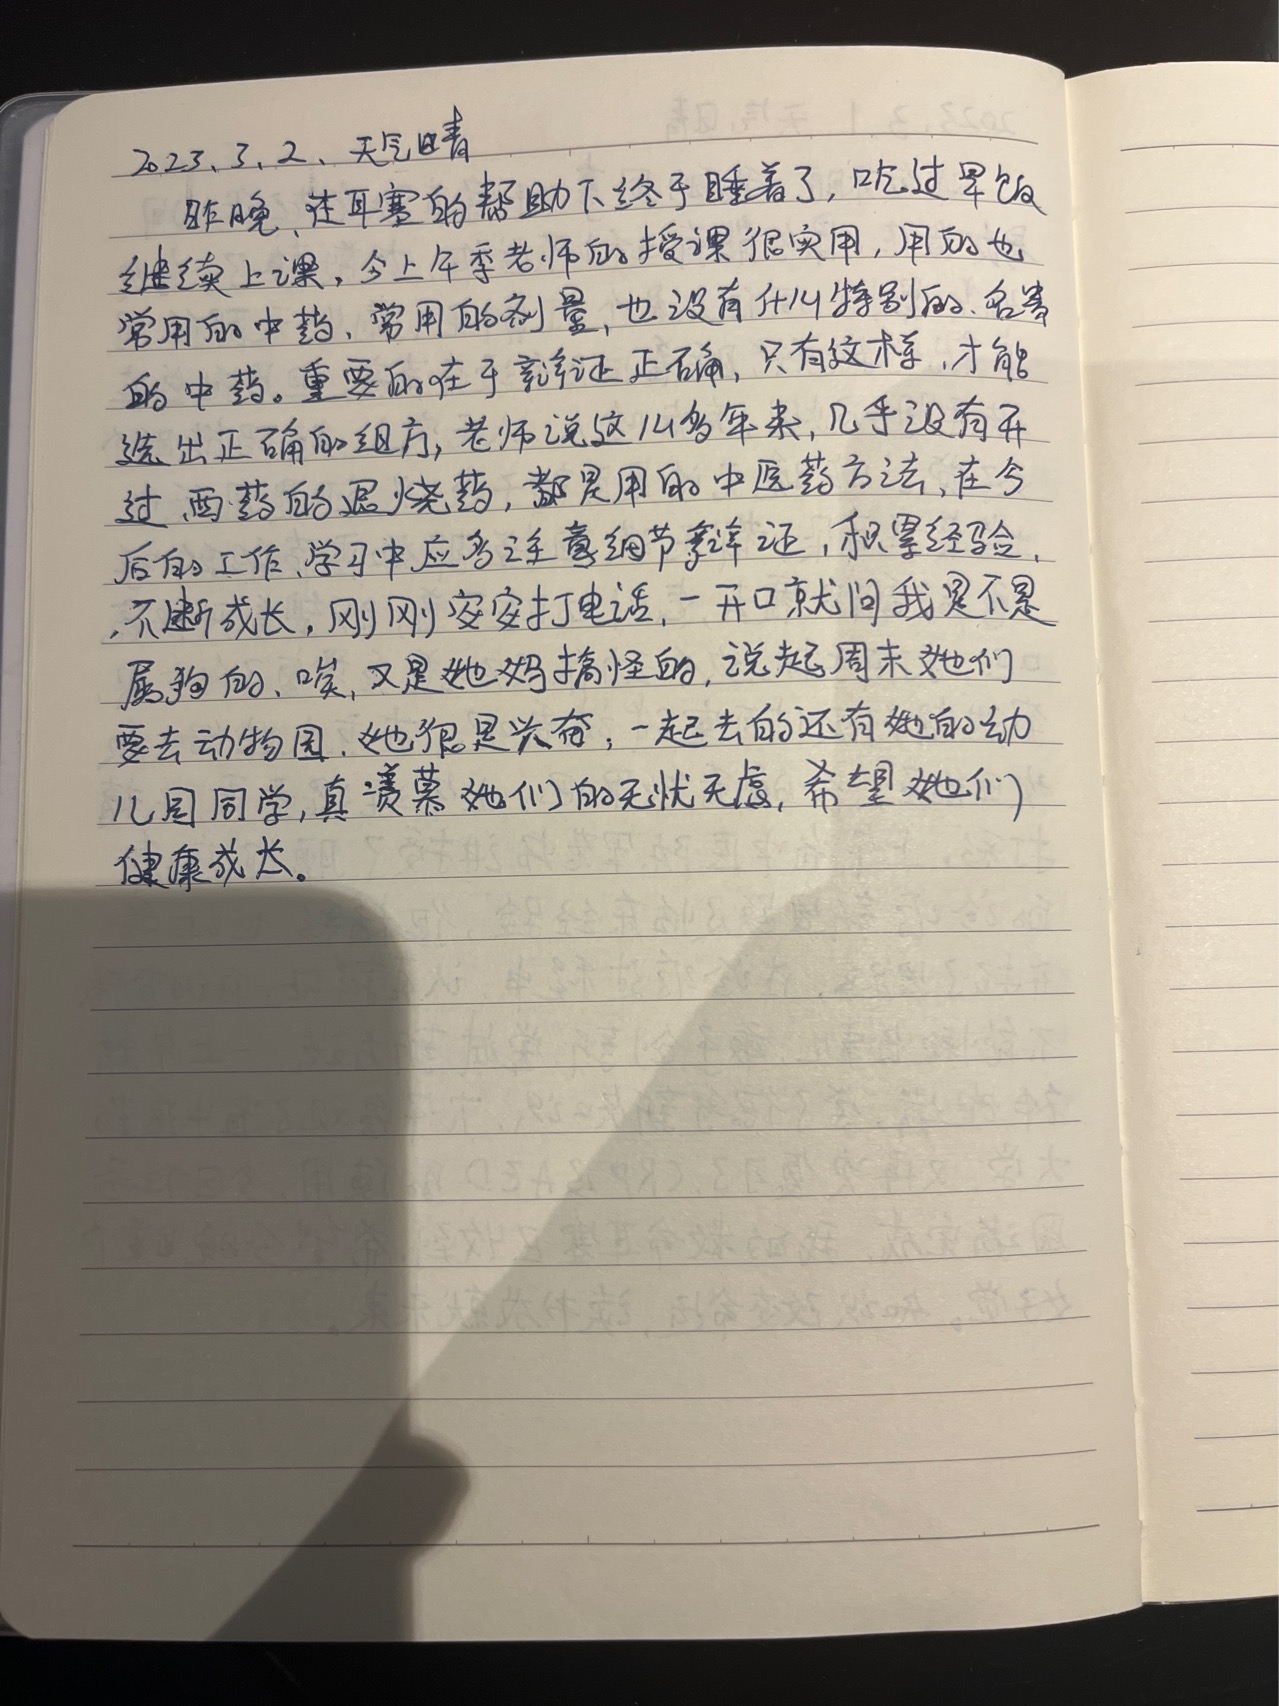 2023、3、2、天气晴
昨晚、在耳塞的帮助下终于睡着了，吃过早饭
继续上课，今上午季老师的授课很实用，用的也
常用的中药、常用的剂量，也没有什么特别的、名贵
的中药。重要的在于辩证正确，只有这样，才能
选出正确的组方，老师说这么多年来，几乎没有开
过西药的退烧药，都是用的中医药方法、在今
后的工作、学习中应多注意细节辩证，积累经验、
不断成长，刚刚安安打电话，一开口就问我是不是
属狗的、唉，又是她妈搞怪的，说起周末她们
要去动物园、她很是兴奋，一起去的还有她的幼
儿园同学，真羡慕她们的无忧无虑，希望她们
健康成长。